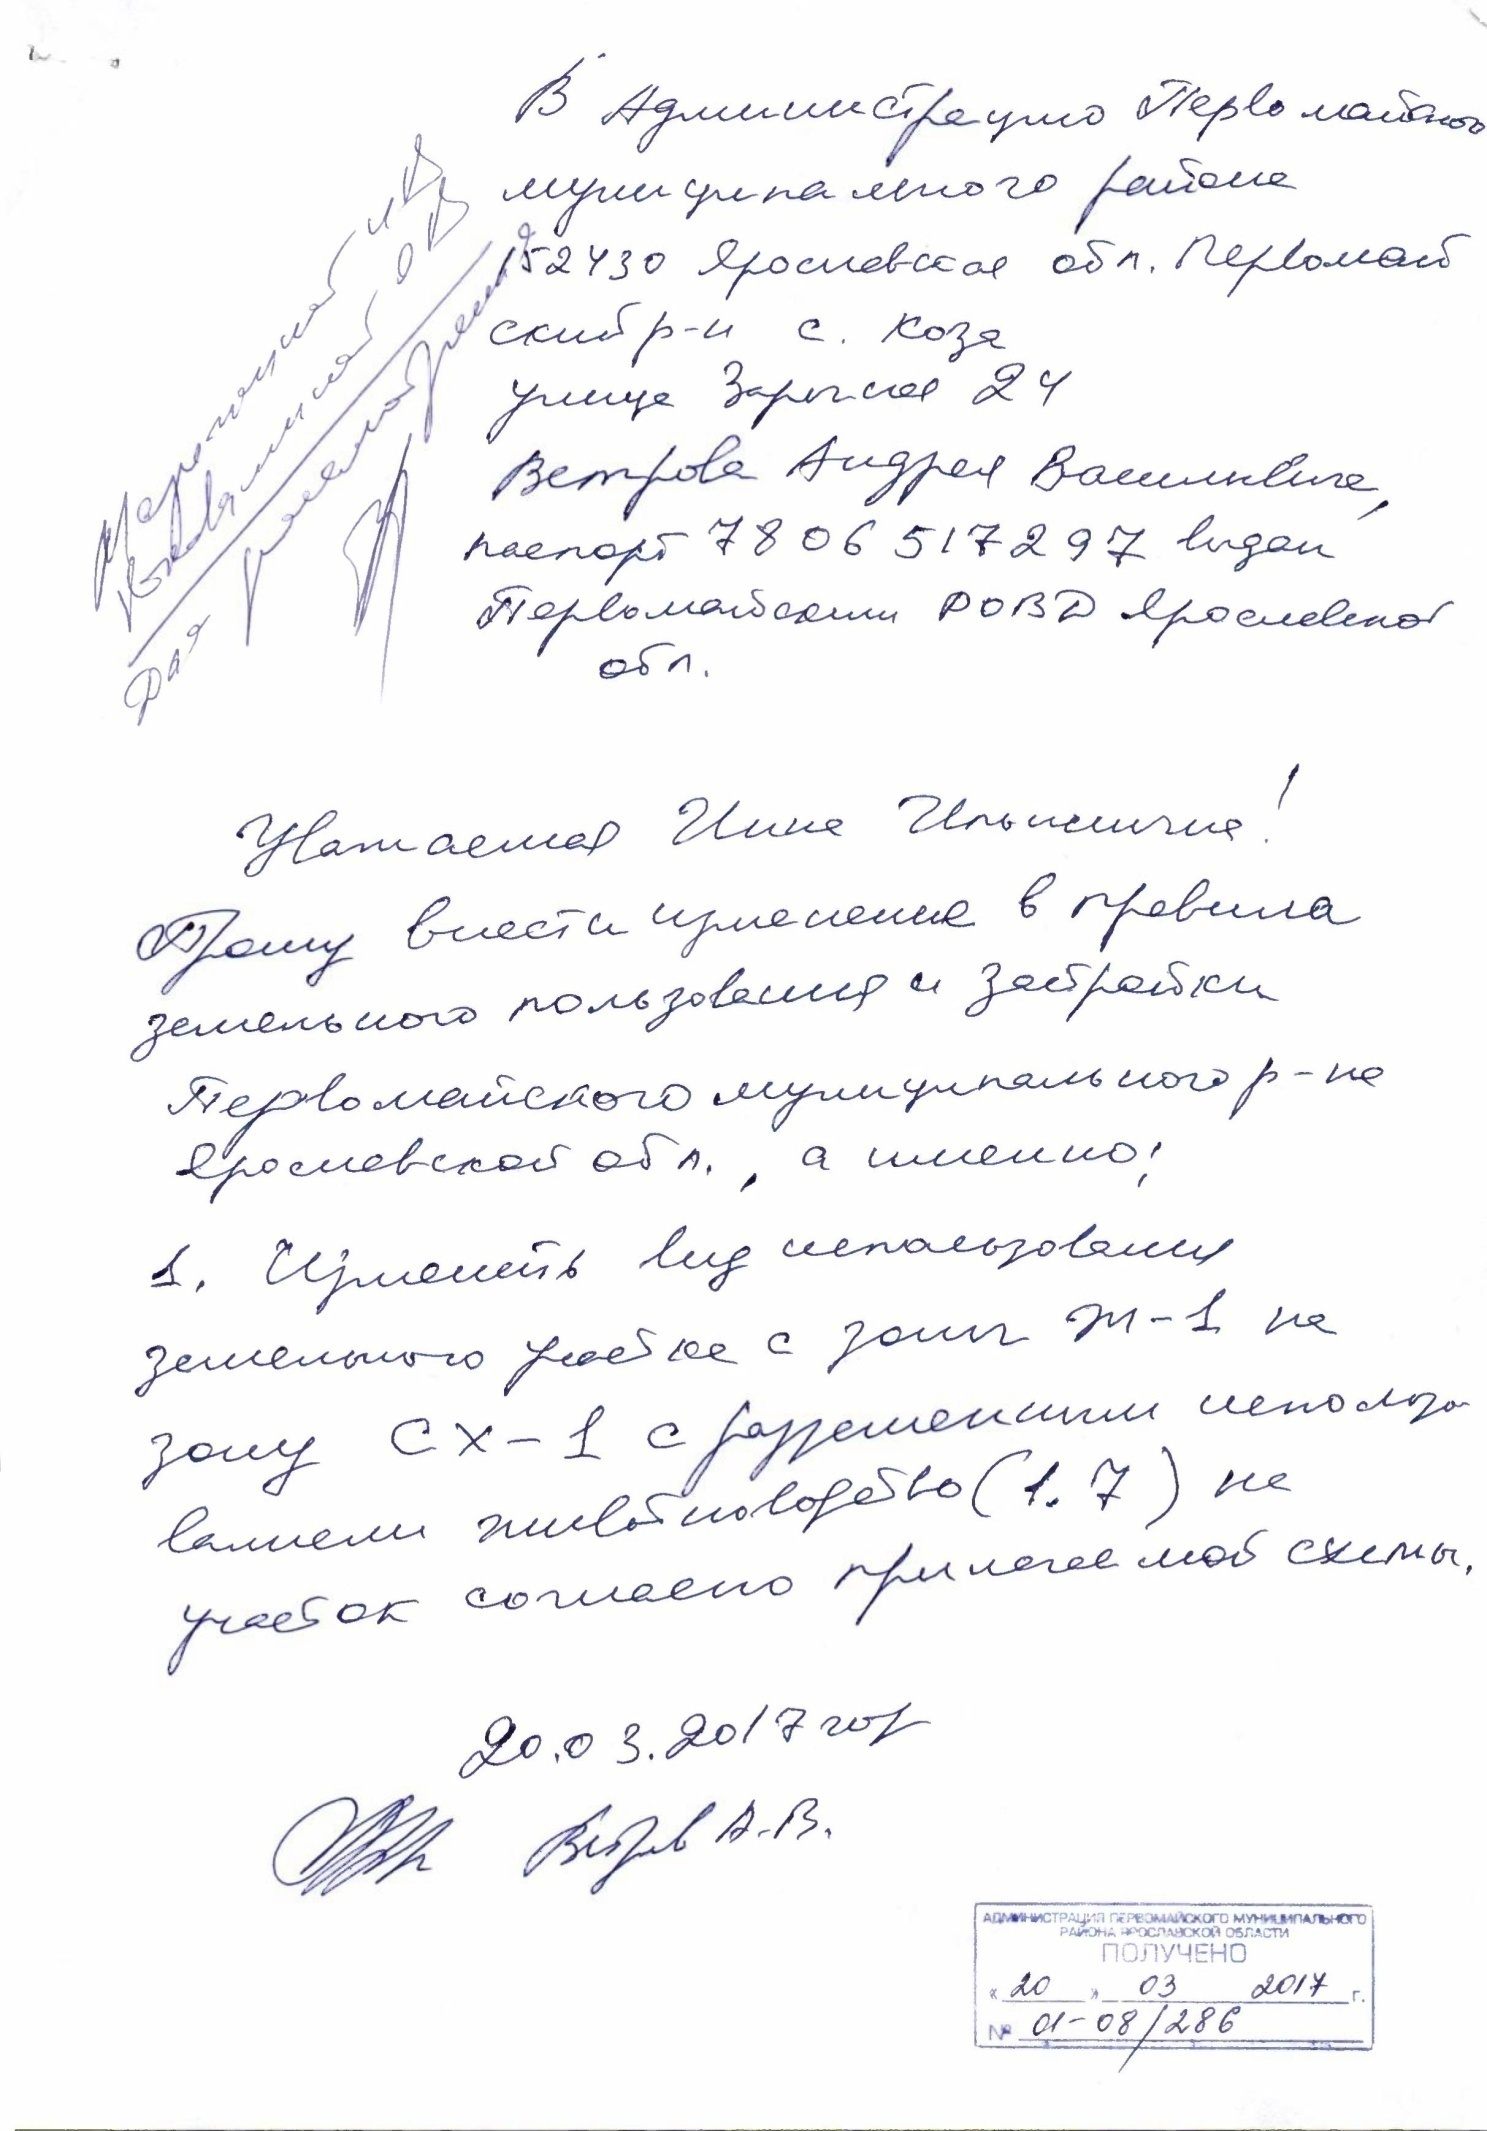 В Администрацию Первомайского
муниципального района
152430 Ярославская обл. Первомай
ский р-н с. Коза
улица Заречная 24
Ветрова Андрея Васильевича,
паспорт 7806 517297 выдан
Первомайским РОВД Ярославской
обл.
Для рассмотрения
Уважаемая Инна Ильинична!
Прошу внести изменение в правила
земельного пользования и застройки
Первомайского муниципального р-на
Ярославской обл., а именно:
1. Изменить вид использования
земельного участка с зоны Ж-1 на
зону СХ-1 с разрешенным использо
ванием животноводство (1.7) на
участок согласно прилагаемой схемы.
20.03.2017 год
Ветров А.В.
АДМИНИСТРАЦИЯ ПЕРВОМАЙСКОГО МУНИЦИПАЛЬНОГО
РАЙОНА ЯРОСЛАВСКОЙ ОБЛАСТИ
ПОЛУЧЕНО
« 20 » 03 2017 г.
№ 01-08/286